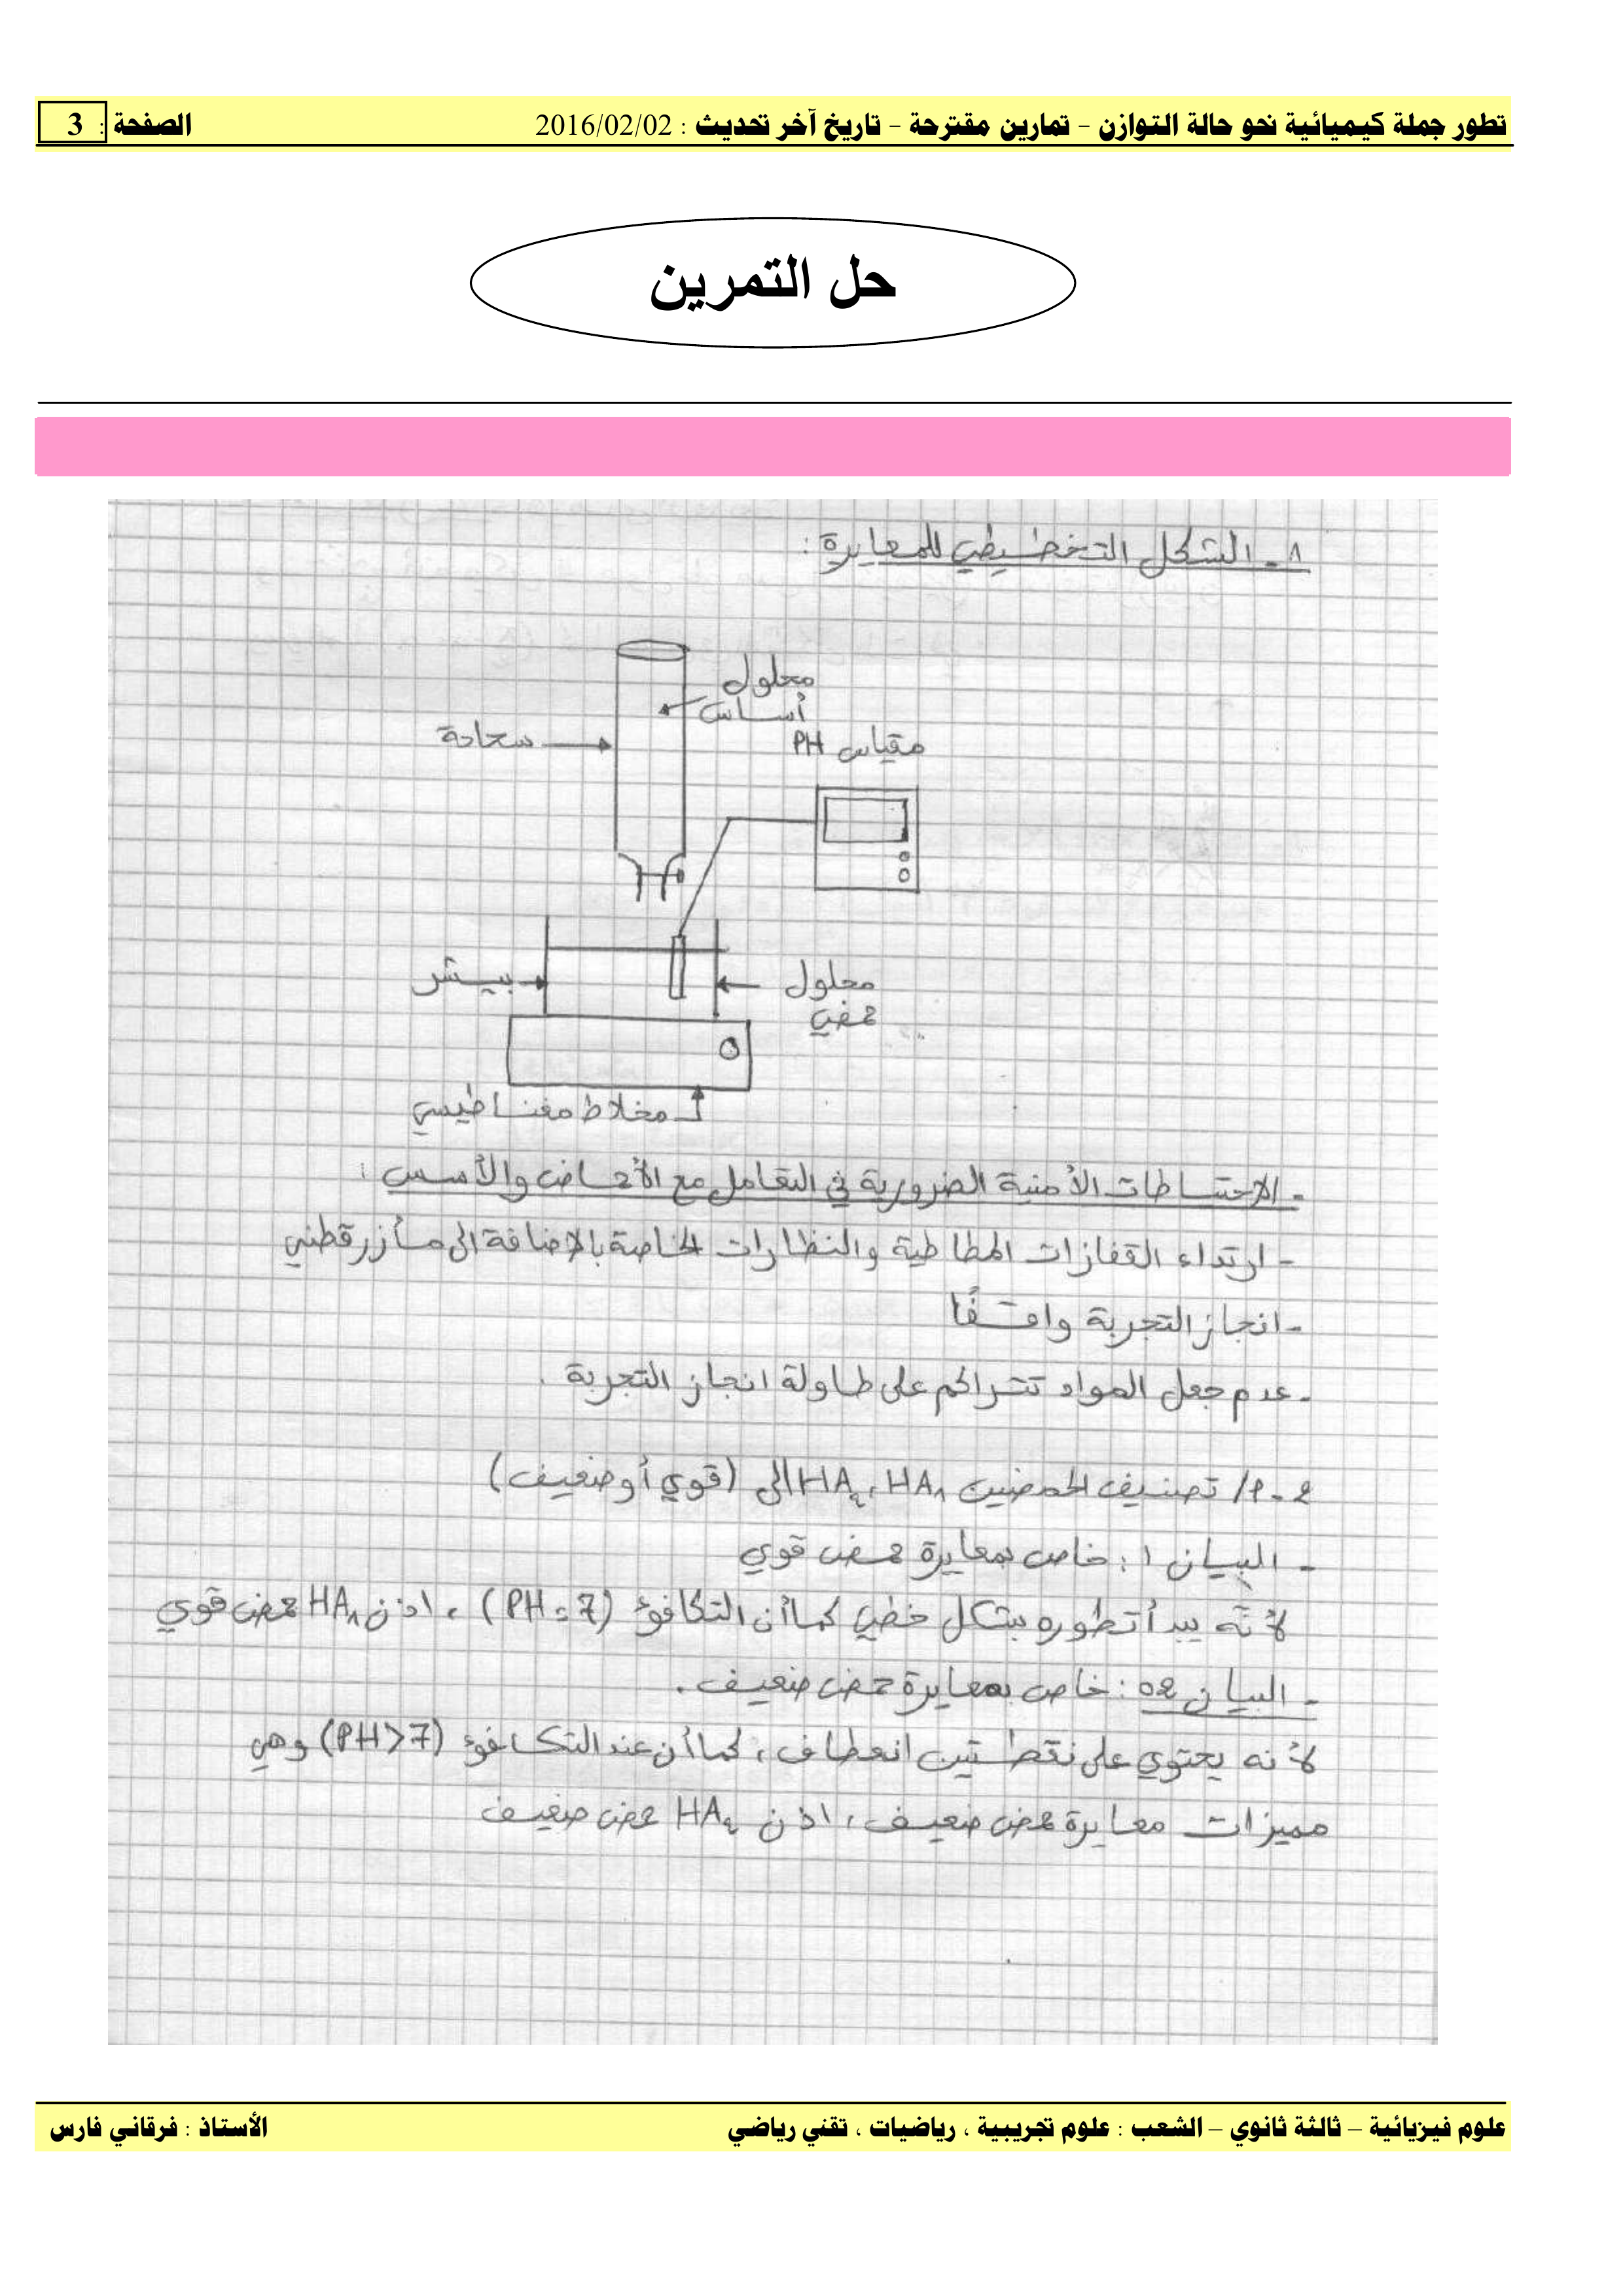 تطور جملة كيميائية نحو حالة التوازن - تمارين مقترحة - تاريخ آخر تحديث : 2016/02/02 الصفحة : 3
حل التمرين
1 - الشكل التخطيطي للمعايرة :
محلول
أساس
سحاحة
مقياس PH
بيشر
محلول
حمضي
مخلاط مغناطيسي
- الاحتياطات الأمنية الضرورية في التعامل مع الأحماض والأسس :
- ارتداء القفازات المطاطية والنظارات الخاصة بالإضافة الى مأزر قطني
- انجاز التجربة واقفًا
- عدم جعل المواد تتراكم على طاولة انجاز التجربة .
2 - أ/ تصنيف الحمضين HA₁ ، HA₂ الى (قوي أو ضعيف)
- البيان 1 : خاص بمعايرة حمض قوي
لأنّه يبدأ تطوره بشكل خطي كما أن التكافؤ (PH = 7) ، اذن HA₁ حمض قوي
- البيان 02 : خاص بمعايرة حمض ضعيف .
لأنه يحتوي على نقطتين انعطاف ، كما أن عند التكافؤ (PH>7) وهي
مميزات معايرة حمض ضعيف ، اذن HA₂ حمض ضعيف
علوم فيزيائية – ثالثة ثانوي – الشعب : علوم تجريبية ، رياضيات ، تقني رياضي الأستاذ : فرقاني فارس